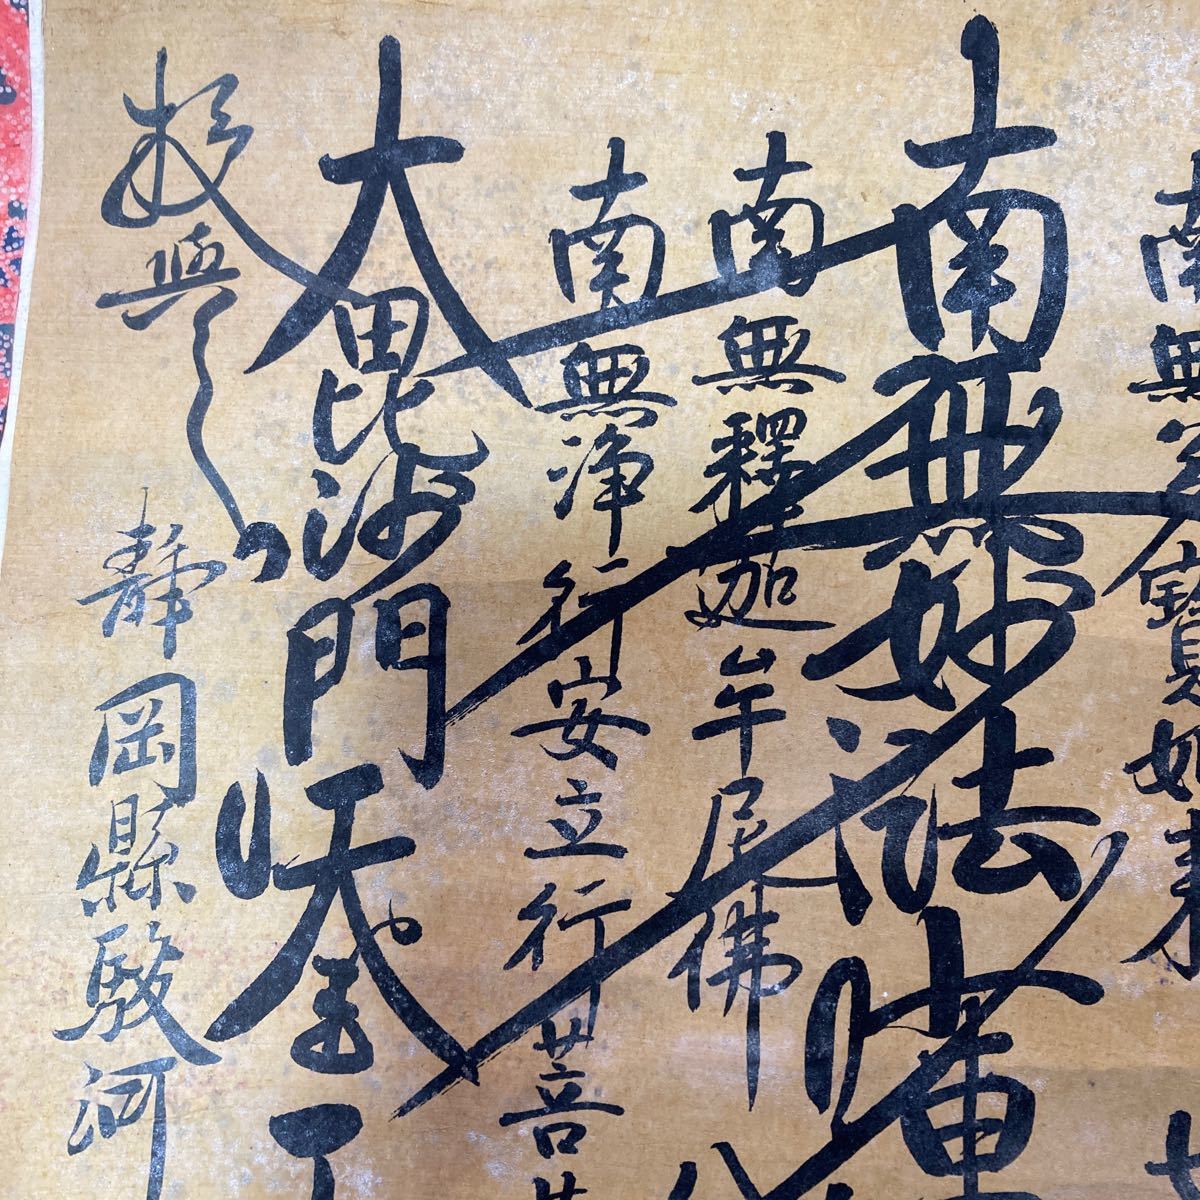 南無多寳如来
南無妙法蓮
南無釋迦牟尼佛
南無浄行安立行菩
大毘沙門天王
授與之
静岡縣駿河